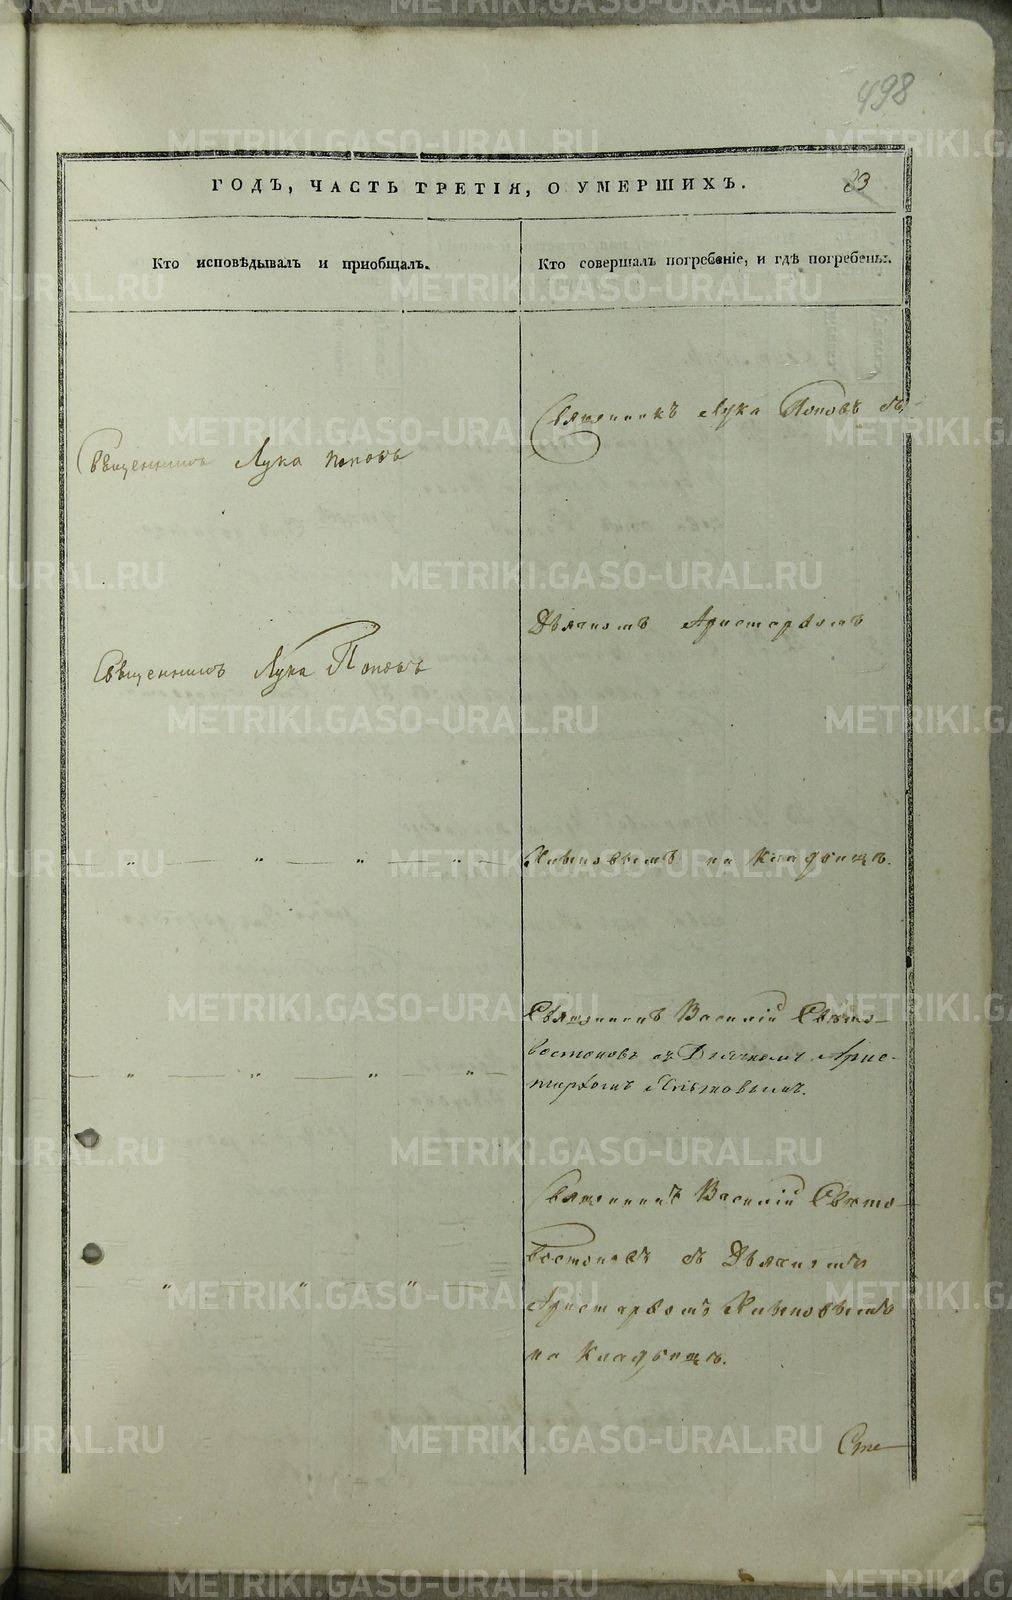 498
ГОДЪ, ЧАСТЬ ТРЕТІЯ, О УМЕРШИХЪ.
Кто исповѣдывалъ и пріобщалъ.
Кто совершалъ погребеніе, и гдѣ погребены.
Священникъ Лука Поповъ
Священникъ Лука Поповъ съ
Священникъ Лука Поповъ
Дьячкомъ Аристархомъ
на кладбищѣ.
Священникъ Василій Свѣто-
востоковъ съ Дьячкомъ Арис-
тархомъ
Священникъ Василій Свѣто-
востоковъ съ Дьячкомъ
Аристархомъ
на кладбищѣ.
METRIKI.GASO-URAL.RU